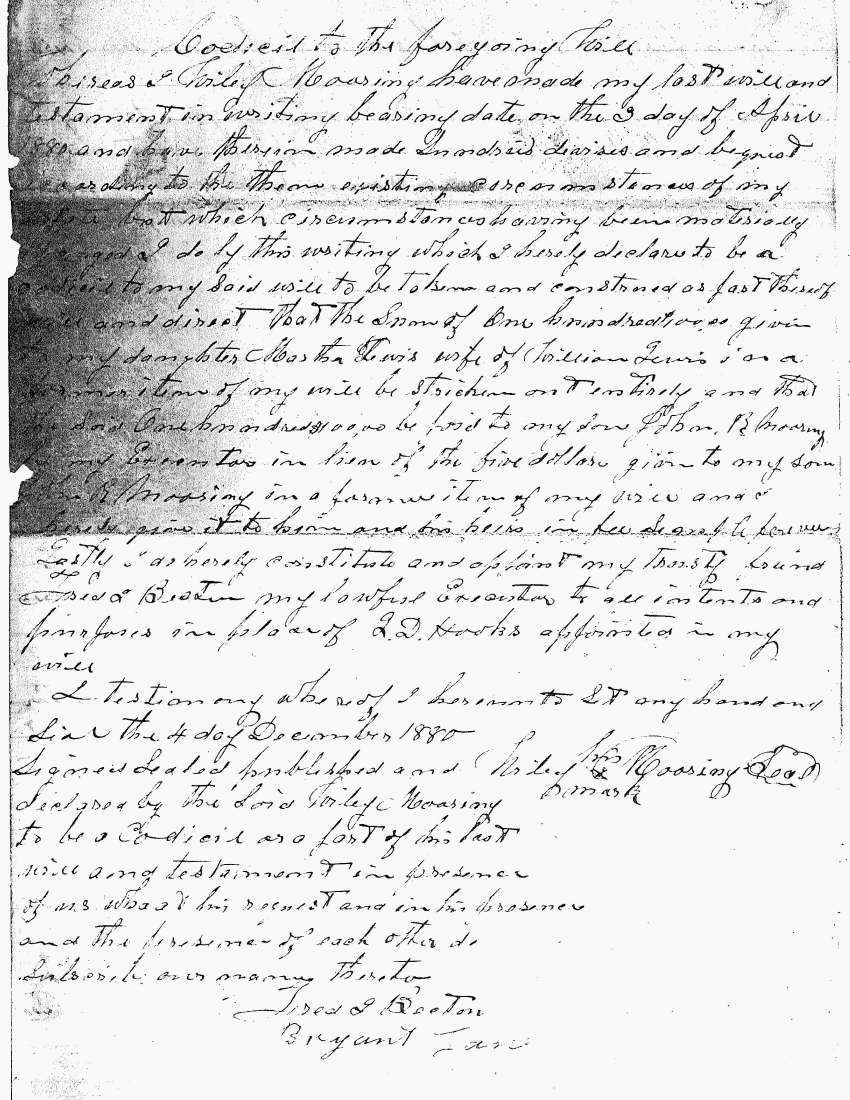 Codicil to the foregoing Will
Whereas I Wiley Mooring have made my last will and
testament in writing bearing date on the 3 day of April
1880 and have therein made Sundries devises and bequest
according to the then existing circumstances of my
estate but which circumstances having been materially
changed I do by this writing which I herely declare to be a
codicil to my said will to be taken and construed as part thereof
will and direct that the Sum of One hundred 100,00 given
to my daughter Martha Lewis wife of William Lewis in a
former item of my will be stricken out entirely and that
the said One hundred $100,00 be paid to my son John, R Mooring
by my Executor in lieu of the five dollars given to my son
John R Mooring in a former item of my will and I
hereby give it to him and his heirs in fee simple forever
Lastly I do hereby constitute and appoint my trusty friend
Fred I Becton my lawful Executor to all intents and
purposes in place of Q.D. Hooks appointed in my
will
I testimony whereof I hereunto Set my hand and
Seal the 4 day December 1880
Signed Sealed published and Wiley his x mark Mooring Seal
declared by the Said Wiley Mooring
to be a Codicil as a part of his last
will and testament in presence
of us who at his request and in his presence
and the presence of each other do
Subscribe our names thereto
Fred I Becton
Bryant